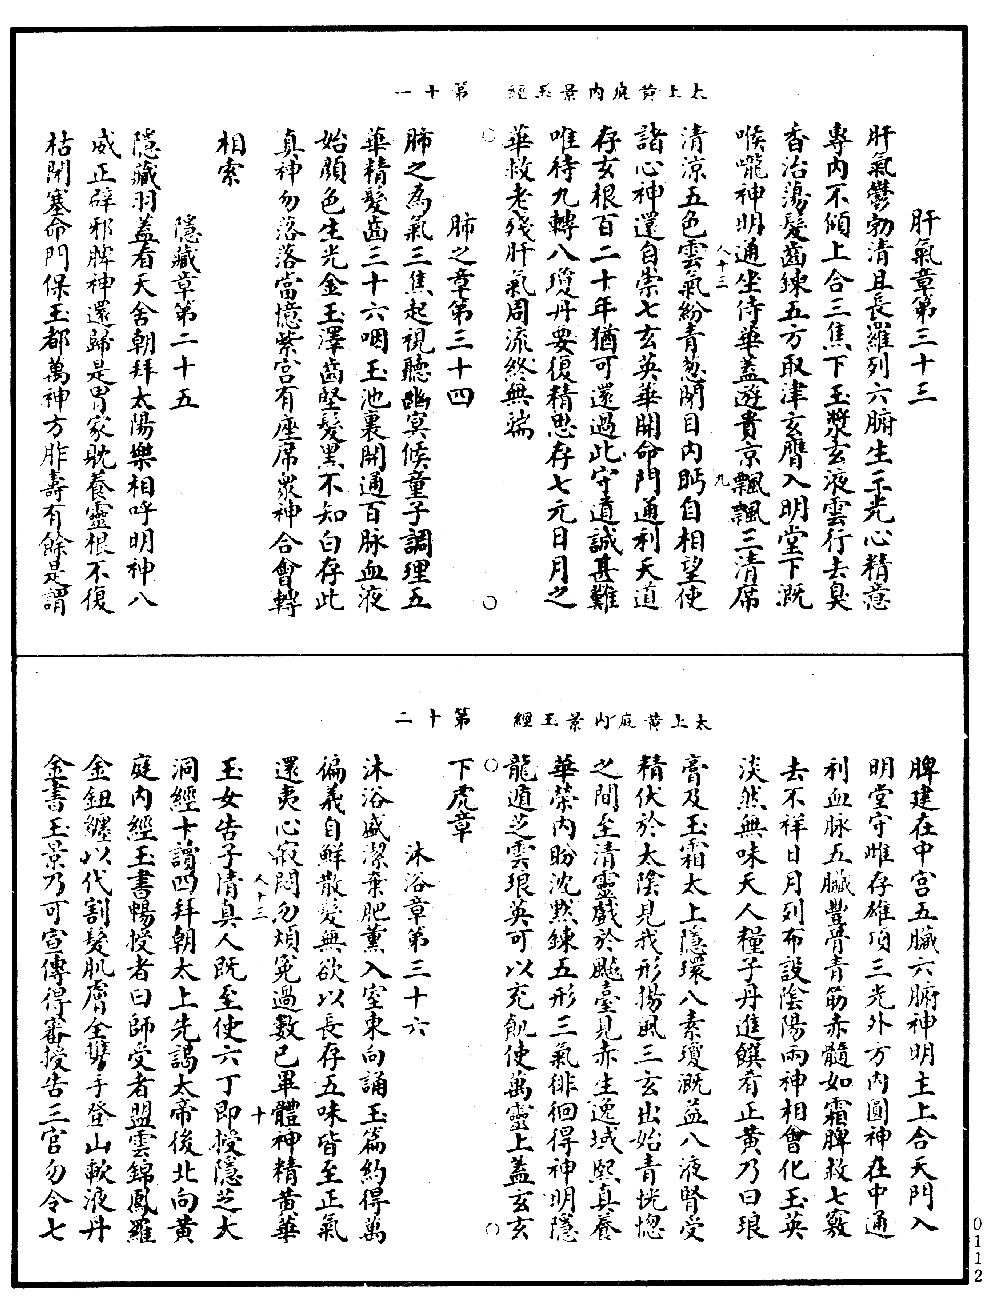 太上黃庭內景玉經　第十一
肝氣章第三十三
肝氣鬱勃清且長羅列六腑生三光心精意
專內不傾上合三焦下玉漿玄液雲行去臭
香治蕩髮齒鍊五方取津玄膺入明堂下溉
喉嚨神明通坐侍華蓋遊貴京飄飄三清席
人十三　九
清涼五色雲氣紛青葱閉目內眄自相望使
諸心神還自崇七玄英華開命門通利天道
存玄根百二十年猶可還過此守道誠甚難
唯待九轉八瓊丹要復精思存七元日月之
華救老殘肝氣周流終無端
肺之章第三十四
肺之為氣三焦起視聽幽冥候童子調理五
華精髮齒三十六咽玉池裏開通百脉血液
始顏色生光金玉澤齒堅髮黑不知白存此
真神勿落落當憶紫宮有座席衆神合會轉
相索
隱藏章第二十五
隱藏羽蓋看天舍朝拜太陽樂相呼明神八
威正辟邪脾神還歸是胃家耽養靈根不復
枯閉塞命門保玉都萬神方胙壽有餘是謂
太上黃庭內景玉經　第十二
脾建在中宮五臟六腑神明主上合天門入
明堂守雌存雄頂三光外方內圓神在中通
利血脉五臟豐骨青筋赤髓如霜脾救七竅
去不祥日月列布設陰陽兩神相會化玉英
淡然無味天人糧子丹進饌肴正黃乃曰琅
膏及玉霜太上隱環八素瓊溉益八液腎受
精伏於太陰見我形揚風三玄出始青恍惚
之間至清靈戲於颷臺見赤生逸域熙真養
華榮內盼沈默鍊五形三氣徘徊得神明隱
龍遁芝雲琅英可以充飢使萬靈上蓋玄玄
下虎章
沐浴章第三十六
沐浴盛潔棄肥薰入室東向誦玉篇約得萬
徧義自鮮散髮無欲以長存五味皆至正氣
還夷心寂悶勿煩冤過數已畢體神精黃華
人十三　十
玉女告子情真人既至使六丁即授隱芝大
洞經十讀四拜朝太上先謁太帝後北向黃
庭內經玉書暢授者曰師受者盟雲錦鳳羅
金鈕纏以代割髮肌膚全攜手登山歃液丹
金書玉景乃可宣傳得審授告三官勿令七
0112